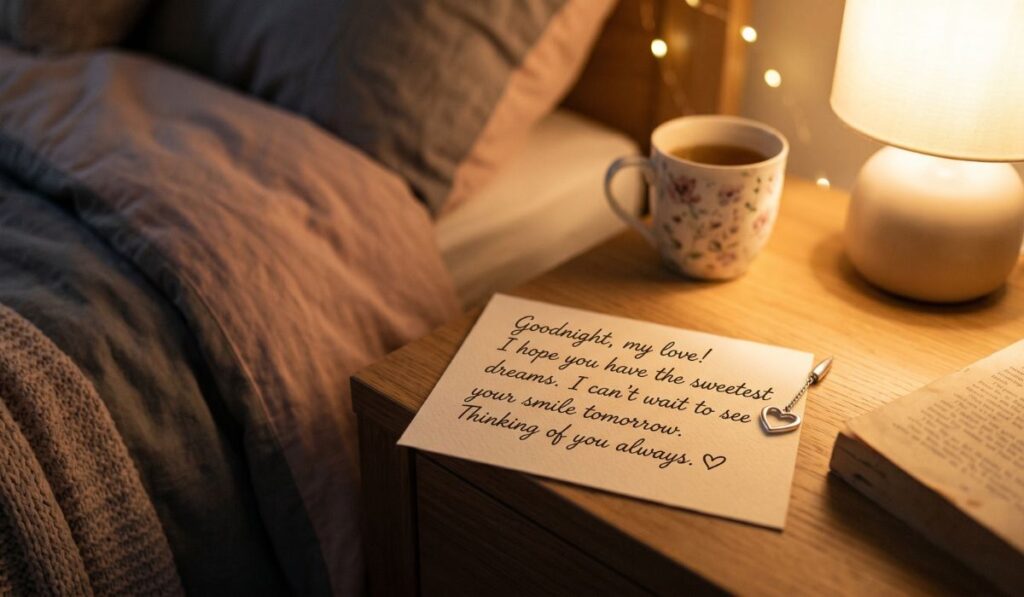 Goodnight, my love!
I hope you have the sweetest
dreams. I can't wait to see
your smile tomorrow.
Thinking of you always. ♡